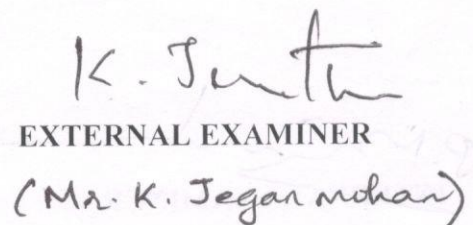 K. J
EXTERNAL EXAMINER
(Mr. K. Jegan mohan)